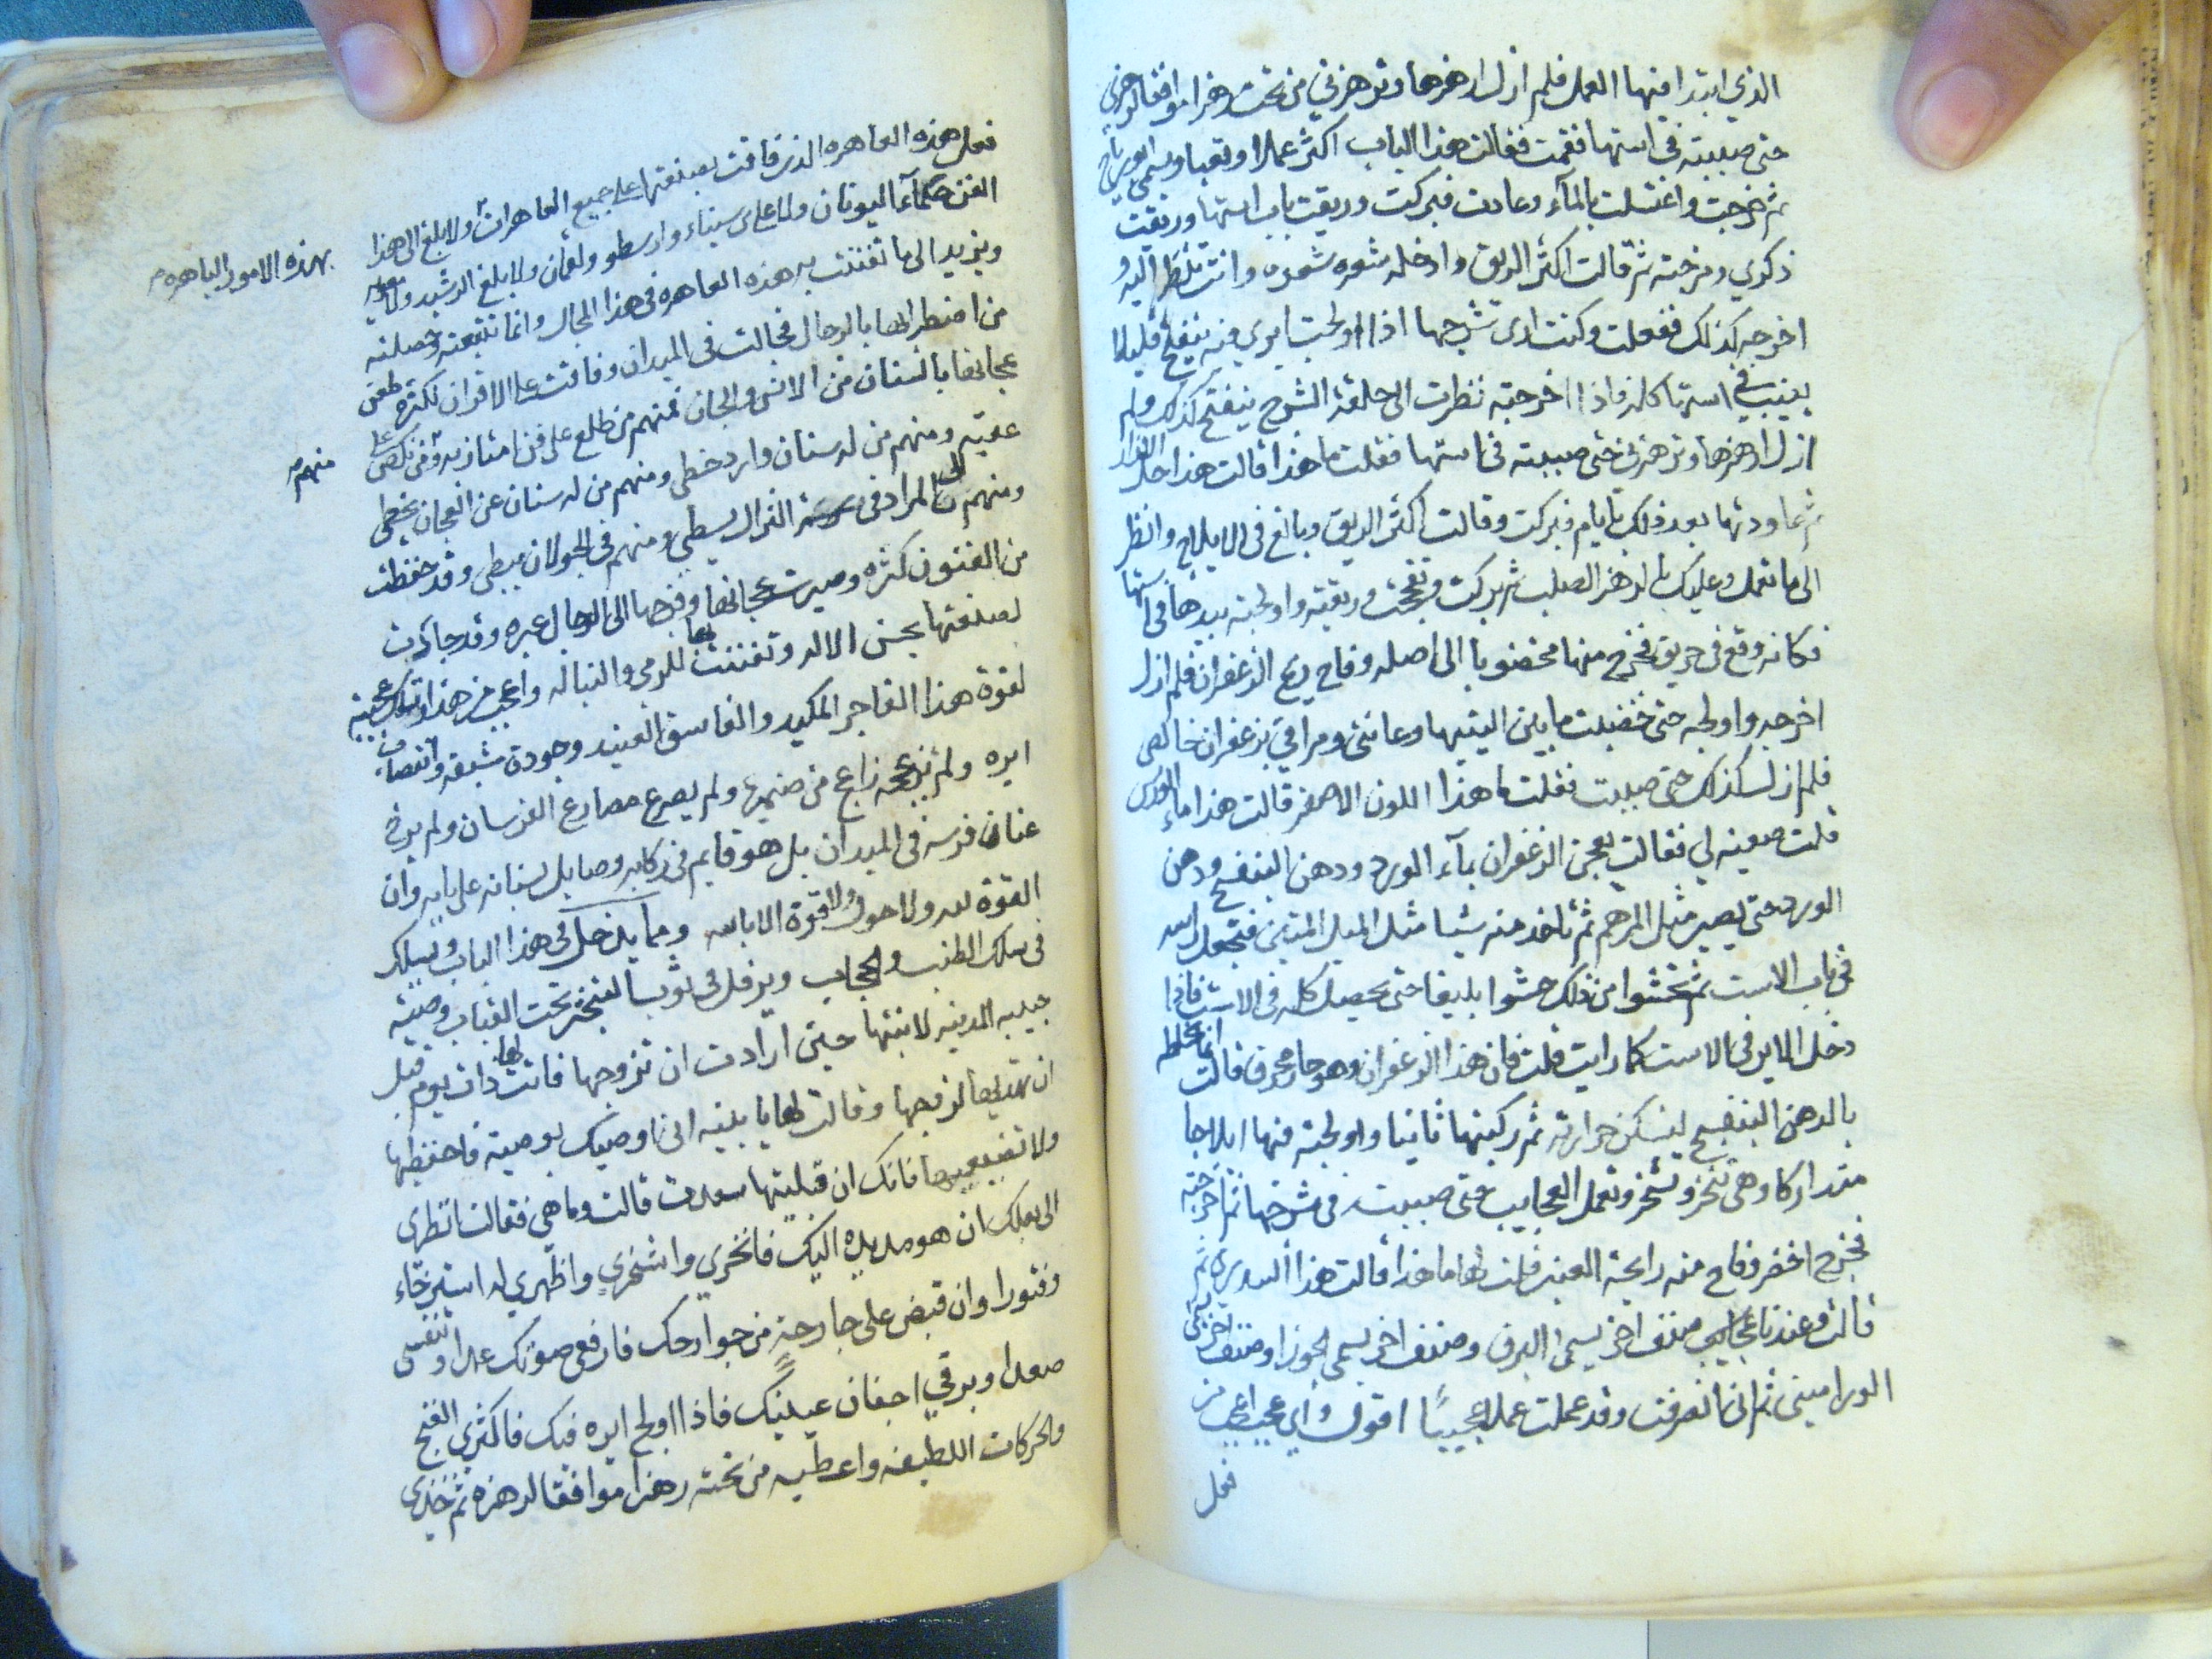 الذي ابتدا فيها العمل فلم ازل ارهزها وترهزني من تحت رهزا موافقا لرهزي
حتى صببته في استها فقمت فقالت هذا الباب اكثر عملا وتعبا ويسمى
ثم خرجت واغتسلت بالمآء وعادت فبركت وريقت باب استها وريقت
ذكري ومرخته ثم قالت اكثر الريق وادخله شعره شعره وانت تنظر اليه و
اخرجه كذلك ففعلت وكنت ارى شرجها اذا اولجت ايري فيه ينفتح قليلا
يغيب في استها كله فاذا اخرجته نظرت الى حلقة الشرج ينفتح كذلك ولم
ازل ارهزها وترهزني حتى صببته في استها فقلت ما هذا قالت هذا حل الازرار
ثم عاودتها بعد ذلك بايام فبركت وقالت اكثر الريق وبالغ في الايلاج وانظر
الى ما تعمل وعليك بالرهز الصلب ثم بركت وتفجت وريقته واولجته بيدها في استها
فكانه وقع في حريق فخرج منها مخضوبا الى اصله وفاح ريح الزعفران فلم ازل
اخرجه واولجه حتى خضبت ما بين اليتيها وعانتي ومراقي بزعفران خالص
فلم ازل كذلك حتى صببت فقلت ما هذا اللون الاصفر قالت هذا ماء الورس
قلت صفيه لي فقالت يعجن الزعفران بمآء الورد ودهن البنفسج ودهن
الورد حتى يصير مثل المرهم ثم تاخذ منه شيا مثل الميل المتين فتجعل راسه
في باب الاست ثم تحشوا من ذلك حشوا بليغا حتى يحصل كله في الاست فاذا
دخل الاير في الاست كما رايت قلت فان هذا الزعفران وهو حار محرق قالت انما نخلطه
بالدهن البنفسج ليسكن حرارته ثم ركبتها ثانيا واولجته فيها ايلاجا
متداركا وهي تنخر وتشخر وتعمل العجايب حتى صببت في شرجها ثم اخرجته
فخرج اخضر وفاح منه رايحة العنبر فقلت لها ما هذا قالت هذا السدري ثم
قالت وعندنا عجايب صنف اخر يسمى البرق وصنف اخر يسمى الجوزا وصنف اخر يسمى
الورامينى ثم انها انصرفت وقد عملت عملا عجيبًا اقول واي عجب اعجب من
فعل
فعل هذه العاهره الذي فاقت بصنعتها على جميع العاهرات ولا بلغ الى هذا
بهذه الامور الباهره
الفن حكمآء اليونان ولا على بن سيناء وارسطو ولقمان ولا بلغ الرشيد ولا
ويزيد الى ما تفننت به هذه العاهره في هذا المجال وانما تتبعته وحصلته
من اضطرابها بالرجال فجالت في الميدان وفاقت على الاقران لكثره طعن
عجانها بالسنان من الانس والجان فمنهم من طلع على فن امتاز به ومن نكص على
منهم
عقبيه ومنهم من له سنان وارد خطي ومنهم من له سنان عن العجان يخطي
ومنهم الى المراد في سرعة النزال يسطي ومنهم في الجولان مبطي وقد حفظت
من الفنون كثره وصيرت عجانها وفرجها الى الرجال عبره وقد جادت
لصنعتها بحسن الاله وتفننت بها للرمي والنباله واعجب من هذا وتلك عجيبة
لقوة هذا الفاجر المكيد والفاسق العنيد وجودة شبقه وانتصاب
ايره ولم يزعجه زاعج من ضمها ولم يصرع مصارع الفرسان ولم يرخ
عنان فرسه في الميدان بل هو قايم في ركابه وصايل بسنانه على بابه وان
القوة لله ولا حول ولا قوة الا بالله ومما يدخل في هذا الباب ويسلك
في سلك الطنب والحجاب ويرفل في ثوب التبختر تحت القباب وصية
حبيبه المدنيه لابنتها حين ارادت ان تزوجها فاتت لها ذات يوم قبل
ان تهديها لزوجها وقالت لها يا بنيه اني اوصيك بوصية فاحفظيها
ولا تضيعيها فانك ان قبلتيها سعدت قالت وما هي فقالت انظري
الى بعلك ان هو مد يده اليك فانخري واشخري واظهري له استرخآء
وفتورا وان قبض على جارحة من جوارحك فارفعي صوتك عمدا وتنفسي
صعدا وبرقي اجفان عينيك فاذا اولج ايره فيك فاكثري الغنج
والحركات اللطيفه واعطيه من تحته رهزا موافقا لرهزه ثم خذي